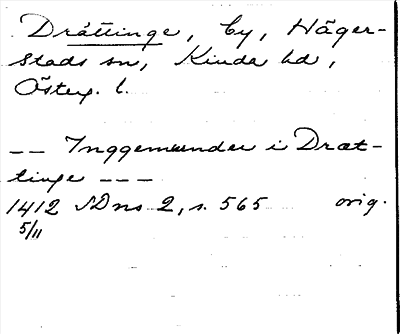 Dråttinge, by, Häger-
stads sn, Kinda hd,
Österg. l.
-- Inggemunder i Dræt-
tinge ---
1412 SDns 2, s. 565 orig.
5/11